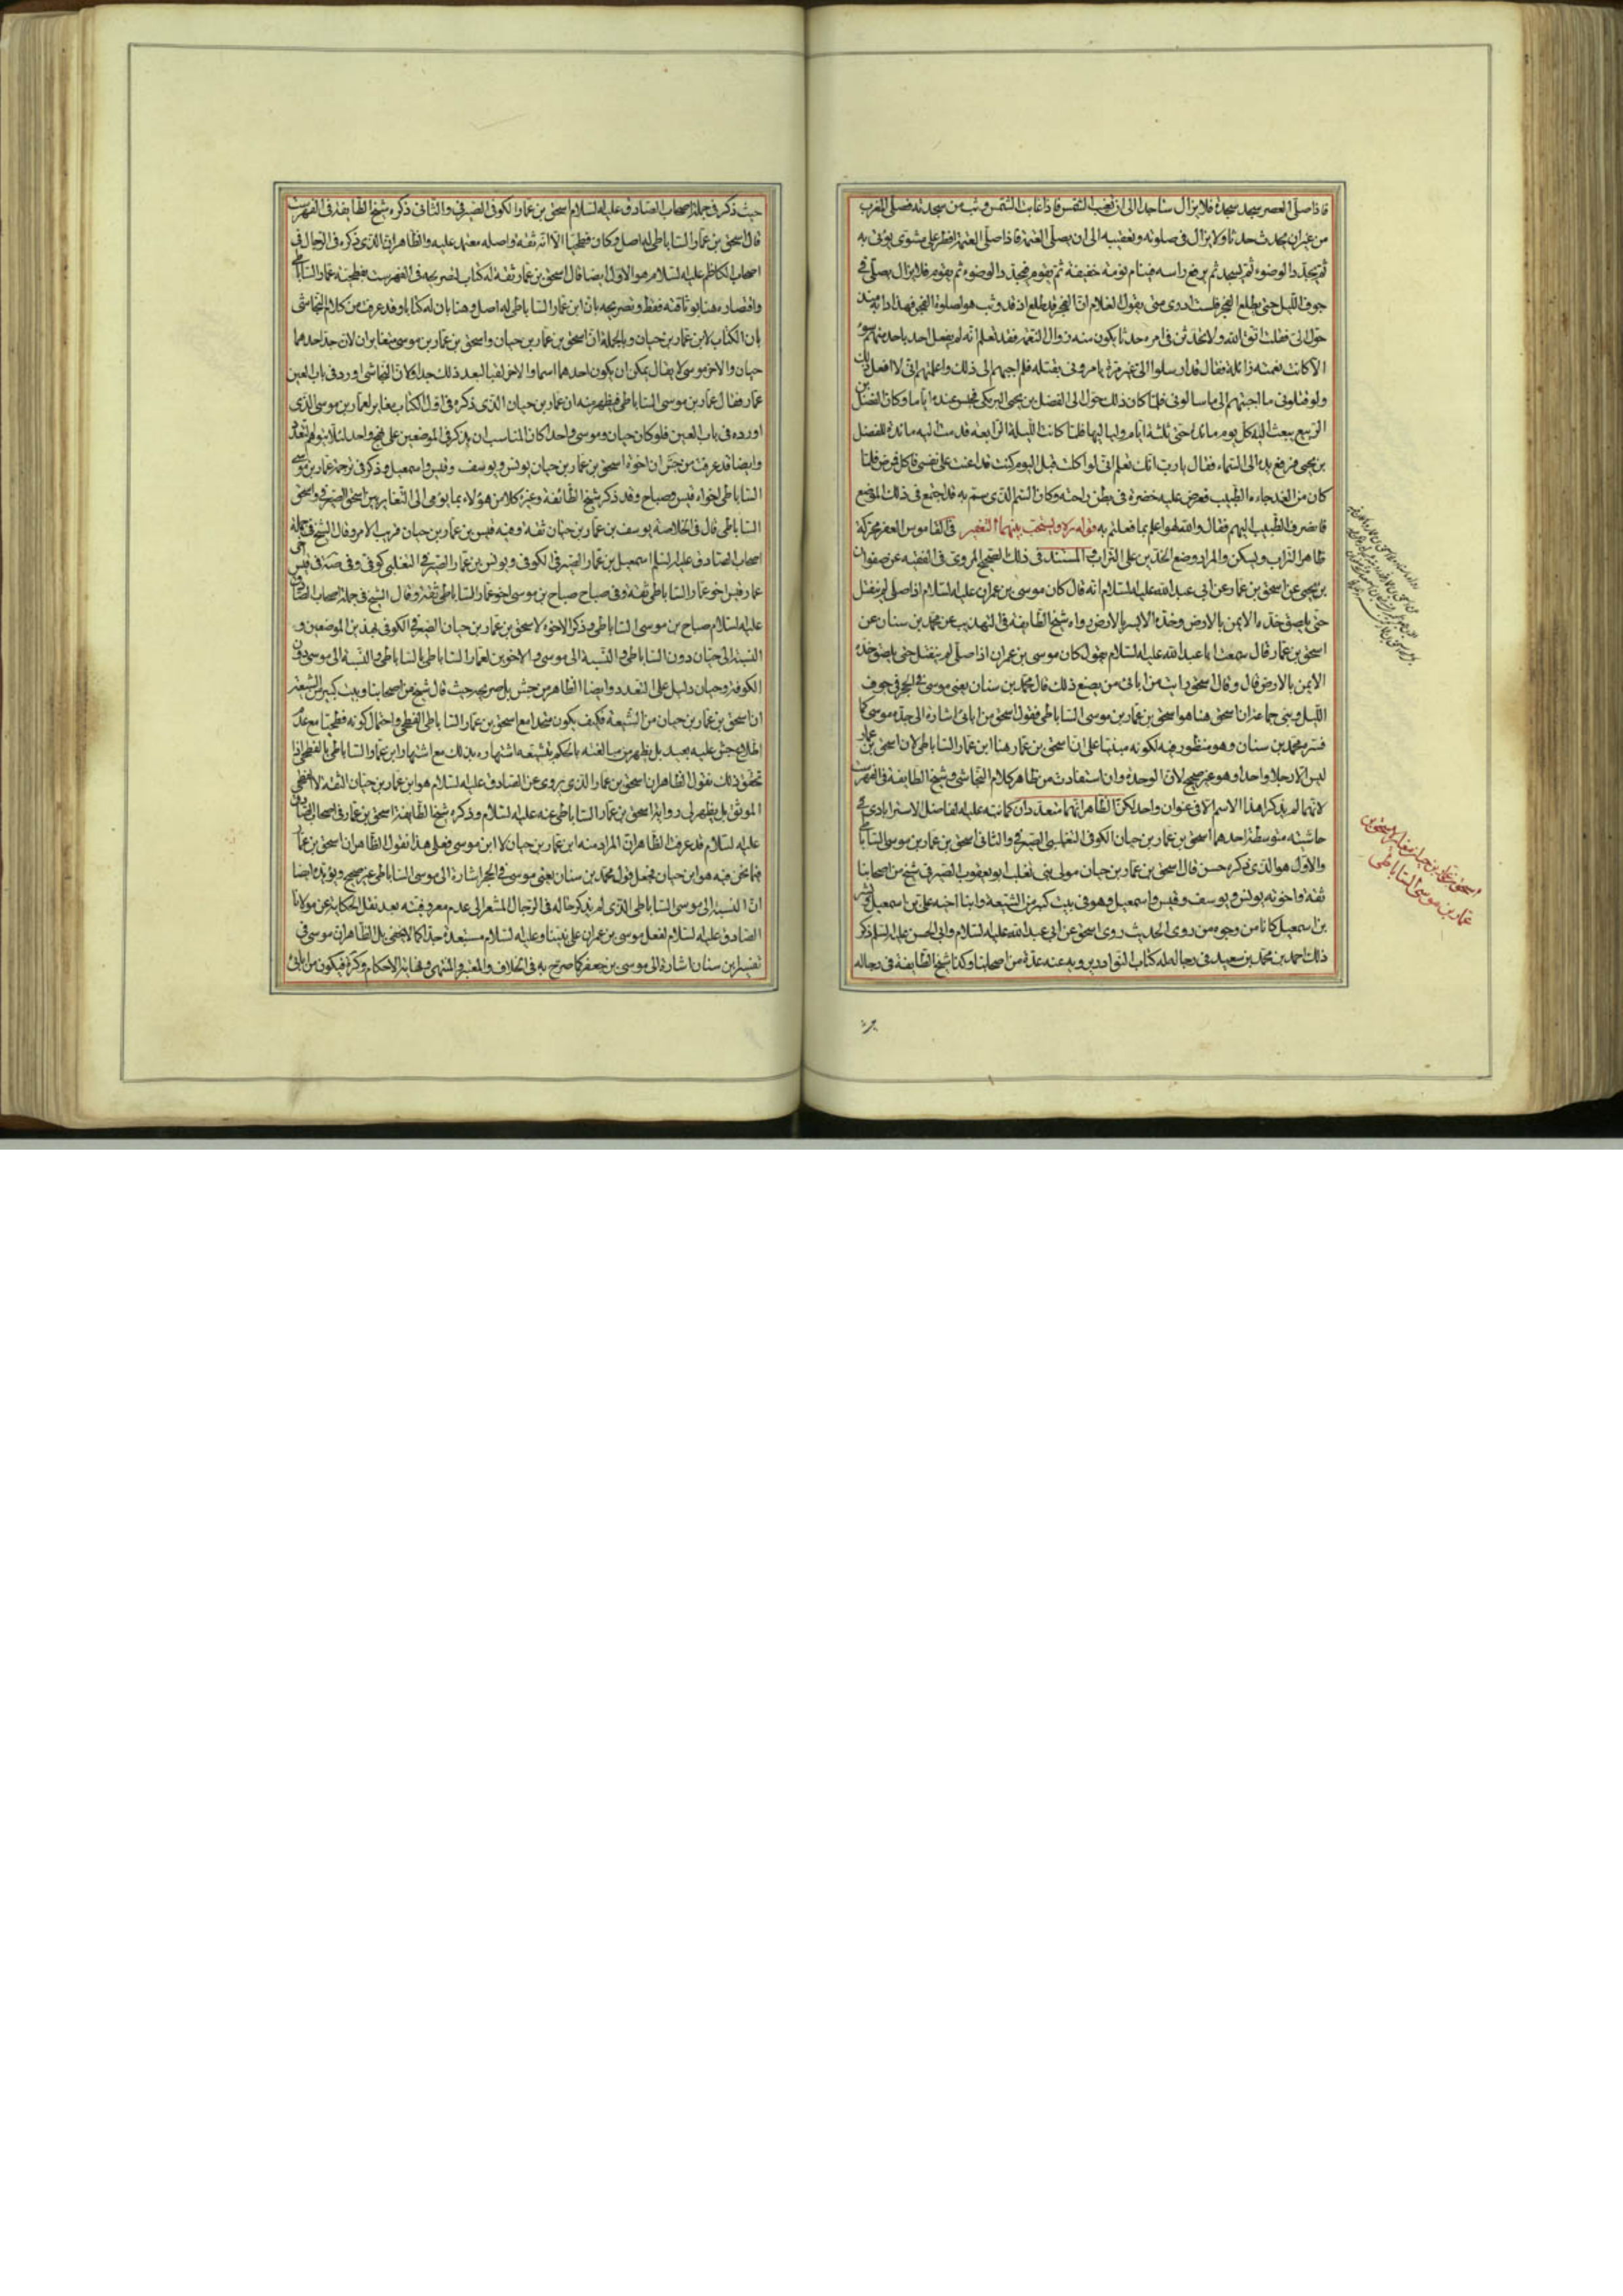 فاذا صلّى العصر سجد سجدة فلا يزال ساجدا الى ان تغيب الشمس فاذا غابت الشمس وثب من سجدته فصلى المغرب
من غير ان يحدث حدثا ولا يزال فى صلوته وتعقيبه الى ان يصلّى العتمة فاذا صلّى العتمة افطر على مشوى يؤتى به
ثم يجدّد الوضوء ثم يسجد ثم يرفع راسه فينام نومة خفيفة ثم يقوم فيجدد الوضوء ثم يقوم فلا يزال يصلى فى
جوف الليل حتى يطلع الفجر فلست ادرى متى يقول الغلام ان الفجر قد طلع اذ قد وثب هو لصلوة الفجر فهذا دابه منذ
حوّل الىّ فقلت اتق الله ولا تحدثن فى امره حدثا يكون منه زوال النعمة فقد تعلم انه لم يفعل احد باحد منهم سوء
الا كانت نعمته زائلة فقال قد ارسلوا الىّ غير مرة يامرونى بقتله فلم اجبهم الى ذلك واعلمتهم انى لا افعل ذلك
ولو قتلونى ما اجبتهم الى ما سالونى فلما كان ذلك حوّل الى الفضل بن يحيى البرمكى فحبس عنده اياما وكان الفضل بن
الربيع يبعث اليه كل يوم مائدة حتى ثلثة ايام ولياليها فلما كانت الليلة الرابعة قدمت اليه مائدة للفضل
بن يحيى فرفع يده الى السماء فقال يا رب انك تعلم انى لو اكلت قبل اليوم كنت قد اعنت على نفسى فاكل فمرض فلما
كان من الغد جاءه الطبيب فعرض عليه خضرة فى بطن راحته وكان السم الذى سم به قد اجتمع فى ذلك الموضع
فانصرف الطبيب اليهم فقال والله لهو اعلم بما فعلتم به قوله ره ويستحب بينهما التعفير فى القاموس العفر محركة
ظاهر التراب ويسكن والمراد وضع الخدين على التراب والمستند فى ذلك الصحيح المروى فى الفقيه عن صفوان
بن يحيى عن اسحق بن عمار عن ابى عبد الله عليه السلام انه قال كان موسى بن عمران عليه السلام اذا صلى لم ينفتل
حتى يلصق خده الايمن بالارض وخده الايسر بالارض رواه شيخ الطايفة فى التهذيب عن محمد بن سنان عن
اسحق بن عمار قال سمعت ابا عبد الله عليه السلام يقول كان موسى بن عمران اذا صلى لم ينفتل حتى يلصق خده
الايمن بالارض قال وقال اسحق رايت من ابائى من يصنع ذلك قال محمد بن سنان يعنى موسى فى الحجر فى جوف
الليل وبنى جماعة ان اسحق هنا هو اسحق بن عمار بن موسى الساباطى فقول اسحق من ابائى اشارة الى جده موسى كما
فسره محمد بن سنان وهو منظور فيه لكونه مبنيا على ان اسحق بن عمار هنا ابن عمار الساباطى لان اسحق بن عمار
ليس الا رجلا واحدا وهو غير صحيح لان الوحدة وان استفادت من ظاهر كلام النجاشى وشيخ الطايفة فى الفهرست
لانهما لم يذكرا هذا الاسم الا فى عنوان واحد لكن الظاهر انهما متعددان كما نبه عليه الفاضل الاسترابادى فى
حاشيته متوسطة احدهما اسحق بن عمار بن حيان الكوفى التغلبى الصيرفى والثانى اسحق بن عمار بن موسى الساباطى
والاول هو الذى ذكره جش قال اسحق بن عمار بن حيان مولى بنى تغلب ابو يعقوب الصيرفى شيخ من اصحابنا
ثقة واخوته يونس ويوسف وقيس واسمعيل وهو فى بيت كبير من الشيعة وابنا اخيه على بن اسمعيل وبشر
بن اسمعيل كانا من وجوه من روى الحديث روى اسحق عن ابى عبد الله عليه السلام وابى الحسن عليه السلم ذكر
ذلك احمد بن محمد بن سعيد فى رجاله له كتاب النوادر يرويه عنه عدة من اصحابنا وكذا شيخ الطايفة فى رجاله
اسحق بن عمار بن حيان مغاير لاسحق بن
عمار بن موسى الساباطى
حيث ذكر فى جملة اصحاب الصادق عليه السلام اسحق بن عمار الكوفى الصيرفى والثانى ذكره شيخ الطايفة فى الفهرست
قال اسحق بن عمار الساباطى له اصل وكان فطحيا الا انه ثقة واصله معتمد عليه والظاهر ان الذى ذكره فى الرجال فى
اصحاب الكاظم عليه السلام هو الاول ايضا قال اسحق بن عمار ثقة له كتاب لتصريحه فى الفهرست بفطحية عمار الساباطى
واقتصاره هنا بوثاقته فقط وتصريحه بان ابن عمار الساباطى له اصل وهنا بان له كتابا وقد عرفت من كلام النجاشى
بان الكتاب لابن عمار بن حيان وبالجملة ان اسحق بن عمار بن حيان واسحق بن عمار بن موسى متغايران لان جد احدهما
حيان والاخر موسى لا يقال يمكن ان يكون احدهما اسما والاخر لقبا لبعد ذلك جدا كلا ان النجاشى اورد فى باب العين
عمار فقال عمار بن موسى الساباطى فيظهر منه ان عمار بن حيان الذى ذكره فى اول الكتاب مغاير لعمار بن موسى الذى
اورده فى باب العين فلو كان حيان وموسى واحدا كان المناسب ان يذكر فى الموضعين على نهج واحد لئلا يتوهم التعدد
وايضا قد عرفت من جش ان اخوة اسحق بن عمار بن حيان يونس ويوسف وقيس واسمعيل وذكر فى ترجمة عمار بن موسى
الساباطى اخواه قيس وصباح وقد ذكر شيخ الطائفة وغيره كلا من هؤلاء بما يومى الى التغاير بين اسحق الصيرفى واسحق
الساباطى قال فى الخلاصة يوسف بن عمار بن حيان ثقة وفيه قيس بن عمار بن حيان قريب الامر وقال الشيخ فى جملة
اصحاب الصادق عليه السلم اسمعيل بن عمار الصيرفى الكوفى ويونس بن عمار الصيرفى التغلبى كوفى وفى صه فى قيس اخى
عمار قيس اخو عمار الساباطى ثقة وفى صباح صباح بن موسى اخو عمار الساباطى ثقة وقال الشيخ فى جملة اصحاب الصادق
عليه السلام صباح بن موسى الساباطى فذكر الاخوة لاسحق بن عمار بن حيان الصيرفى الكوفى بهذين الموضعين و
النسبة الى حيان دون الساباطى والنسبة الى موسى والاخوين لعمار الساباطى بالساباطى والنسبة الى موسى دون
الكوفة وحيان دليل على التعدد وايضا الظاهر من جش بل صريحه حيث قال شيخ من اصحابنا وبيت كبير من الشيعة
ان اسحق بن عمار بن حيان من الشيعة فكيف يكون متحدا مع اسحق بن عمار الساباطى الفطحى واحتمال كونه فطحيا مع عدم
اطلاع جش عليه بعيد بل يظهر من مبالغته بالحكم بتشيعه اشتهاره بذلك مع اشتهار ابن عمار الساباطى بالفطحى اذا
تحقق ذلك نقول الظاهر ان اسحق بن عمار الذى يروى عن الصادق عليه السلام هو ابن عمار بن حيان الثقة لا الفطحى
الموثق بل يظهر لى رواية اسحق بن عمار الساباطى عنه عليه السلام وذكره شيخ الطايفة اسحق بن عمار فى اصحاب الصادق
عليه السلام قد عرفت الظاهر ان المراد منه ابن عمار بن حيان لا ابن موسى فعلى هذا نقول الظاهر ان اسحق بن عمار
فيما نحن فيه هو ابن حيان فجعل قول محمد بن سنان يعنى موسى فى الحجر اشارة الى موسى الساباطى غير صحيح ويؤيده ايضا
ان النسبة الى موسى الساباطى الذى لم يذكر حاله فى الرجال المشعر الى عدم معروفيته بعد نقل الحكاية عن مولانا
الصادق عليه السلام لفعل موسى بن عمران على نبينا وعليه السلام مستبعدة جدا كما لا يخفى بل الظاهر ان موسى فى
تفسير ابن سنان اشارة الى موسى بن جعفر كما صرح به فى الخلاف والمعتبر والمنتهى ونهاية الاحكام وكره فيكون من ابائى